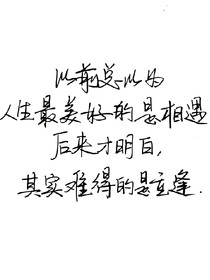 以前总以为
人生最美好的是相遇
后来才明白,
其实难得的是重逢.